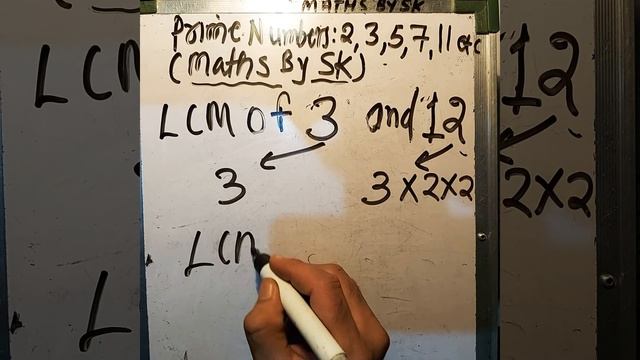 MATHS BY SK
Prime Numbers: 2, 3, 5, 7, 11 etc
(Maths By SK)
LCM of 3 and 12
3 3 x 2 x 2
LCM